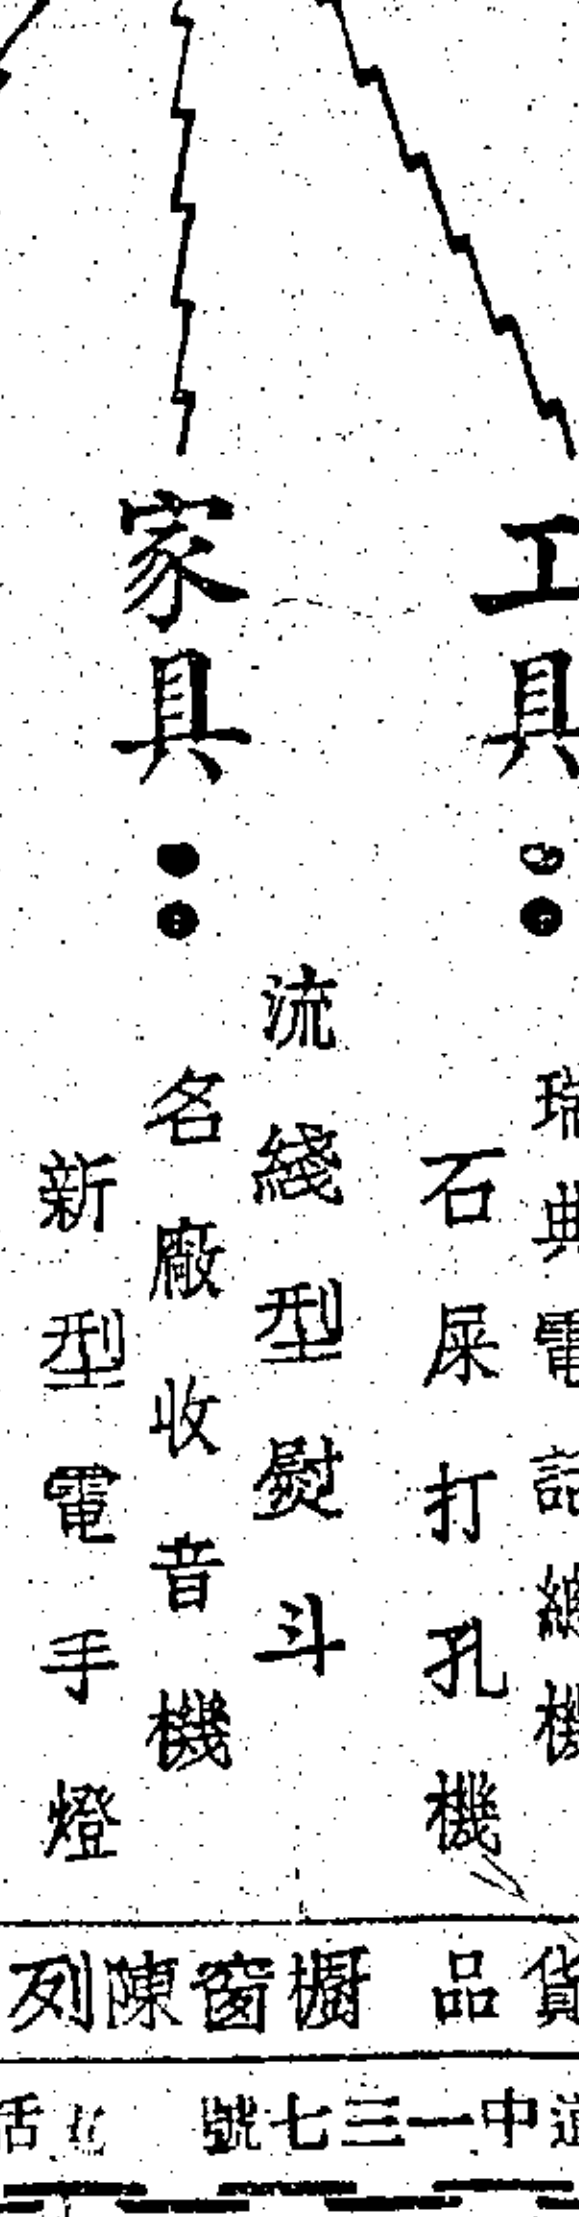 工具：
瑞典電話總機
石屎打孔機
家具：
流綫型熨斗
名廠收音機
新型電手燈
貨品 櫥窗陳列
道中一三七號